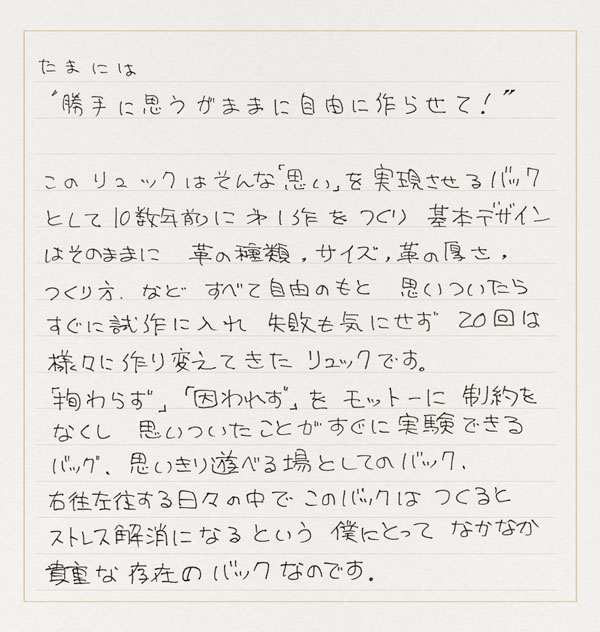 たまには
"勝手に思うがままに自由に作らせて!"
このリュックはそんな「思い」を実現させるバック
として10数年前に第1作をつくり 基本デザイン
はそのままに 革の種類,サイズ,革の厚さ,
つくり方、など すべて自由のもと 思いついたら
すぐに試作に入れ 失敗も気にせず 20回は
様々に作り変えてきた リュックです。
「拘わらず」「因われず」を モットーに 制約を
なくし 思いついたことがすぐに実験できる
バッグ、思いきり遊べる場としてのバック、
右往左往する日々の中で このバックは つくると
ストレス解消になるという 僕にとって なかなか
貴重な存在のバックなのです.